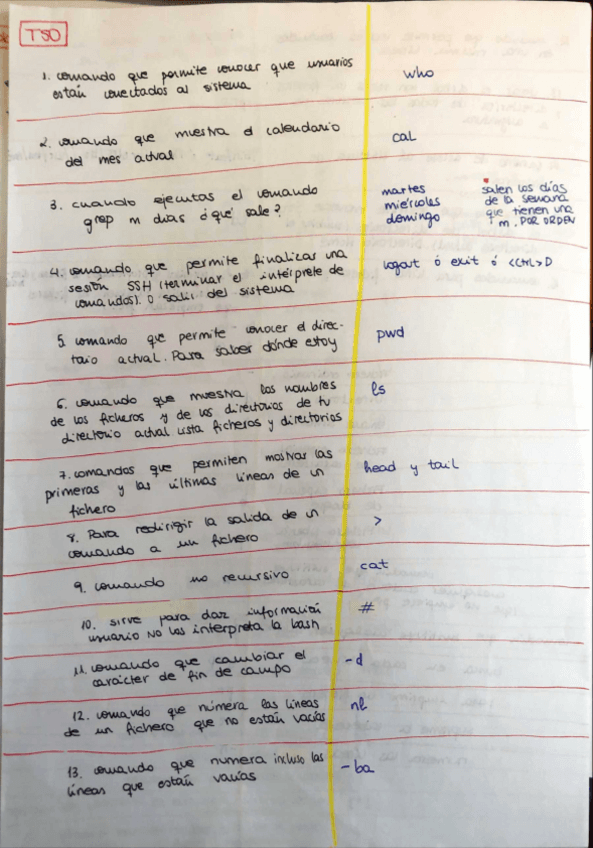 TSO
1. comando que permite conocer que usuarios
están conectados al sistema
who
2. comando que muestra el calendario
del mes actual
cal
3. cuando ejecutas el comando
grep m dias ¿qué sale?
martes
miércoles
domingo
salen los días
de la semana
que tienen una
m. POR ORDEN
4. comando que permite finalizar una
sesión SSH (terminar el intérprete de
comandos). O salir del sistema
logout ó exit ó <Ctrl>D
5. comando que permite conocer el direc-
torio actual. Para saber dónde estoy
pwd
6. comando que muestra los nombres
de los ficheros y de los directorios de tu
directorio actual lista ficheros y directorios
ls
7. comandos que permiten mostrar las
primeras y las últimas líneas de un
fichero
head y tail
8. Para redirigir la salida de un
comando a un fichero
>
9. comando no recursivo
cat
10. sirve para dar información
usuario NO los interpreta la bash
#
11. comando que cambiar el
carácter de fin de campo
-d
12. comando que númera las líneas
de un fichero que no están vacías
nl
13. comando que numera incluso las
líneas que están vacías
-ba